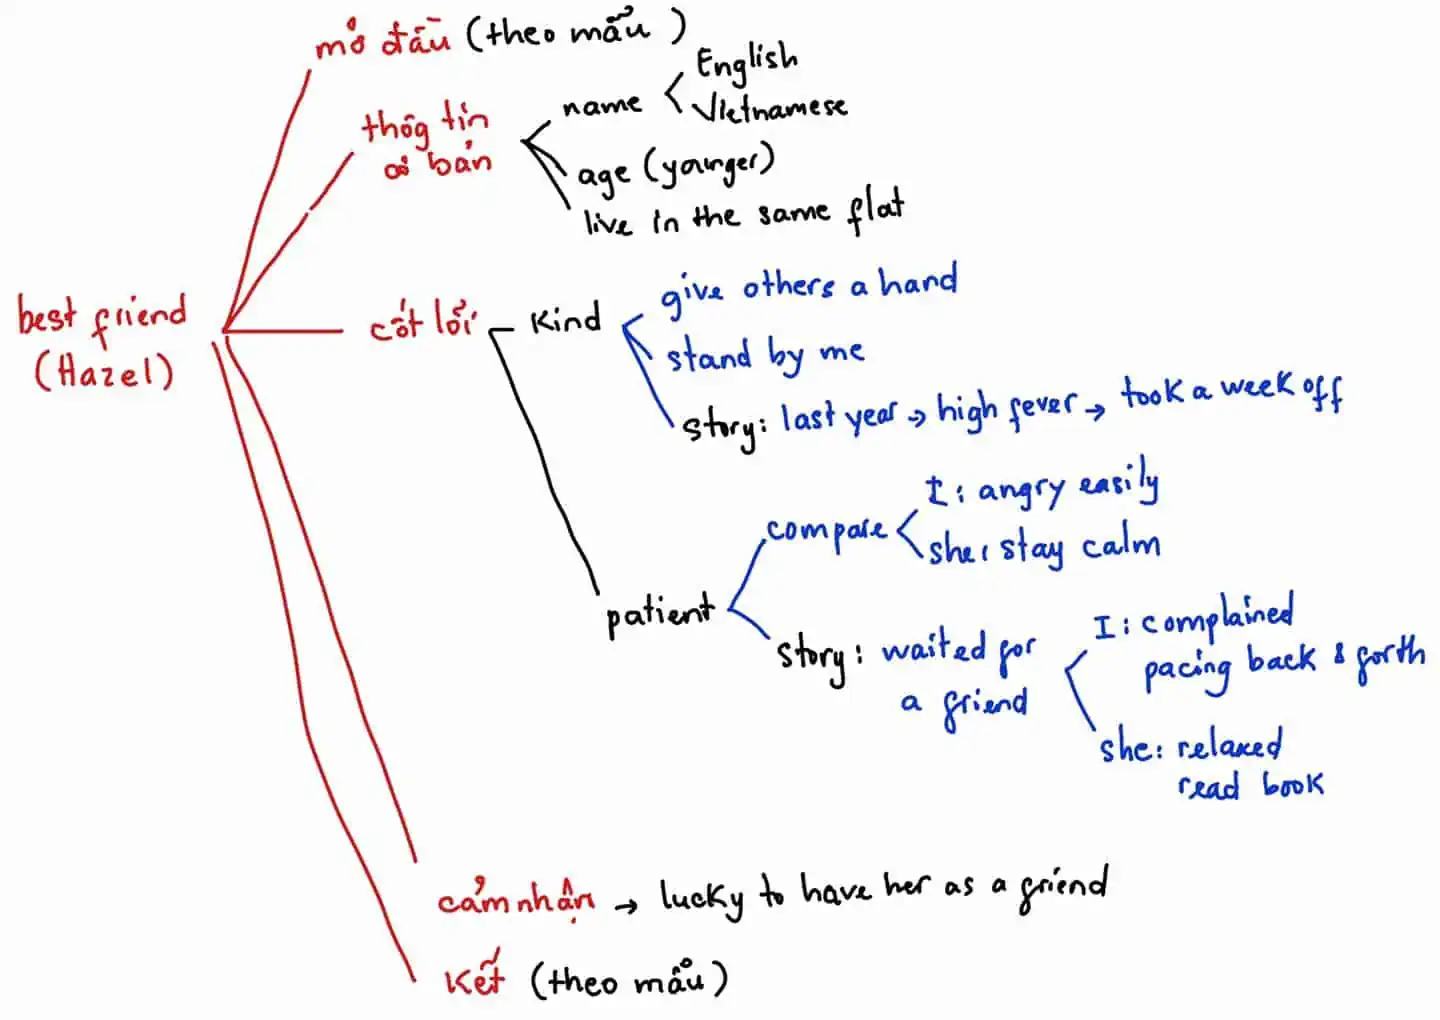 mở đầu (theo mẫu)
thôg tin
cơ bản
name
English
Vietnamese
age (younger)
live in the same flat
best friend
(Hazel)
cốt lõi
kind
give others a hand
stand by me
story: last year → high fever → took a week off
patient
compare
I: angry easily
she: stay calm
story: waited for
a friend
I: complained
pacing back & forth
she: relaxed
read book
cảm nhận → lucky to have her as a friend
kết (theo mẫu)